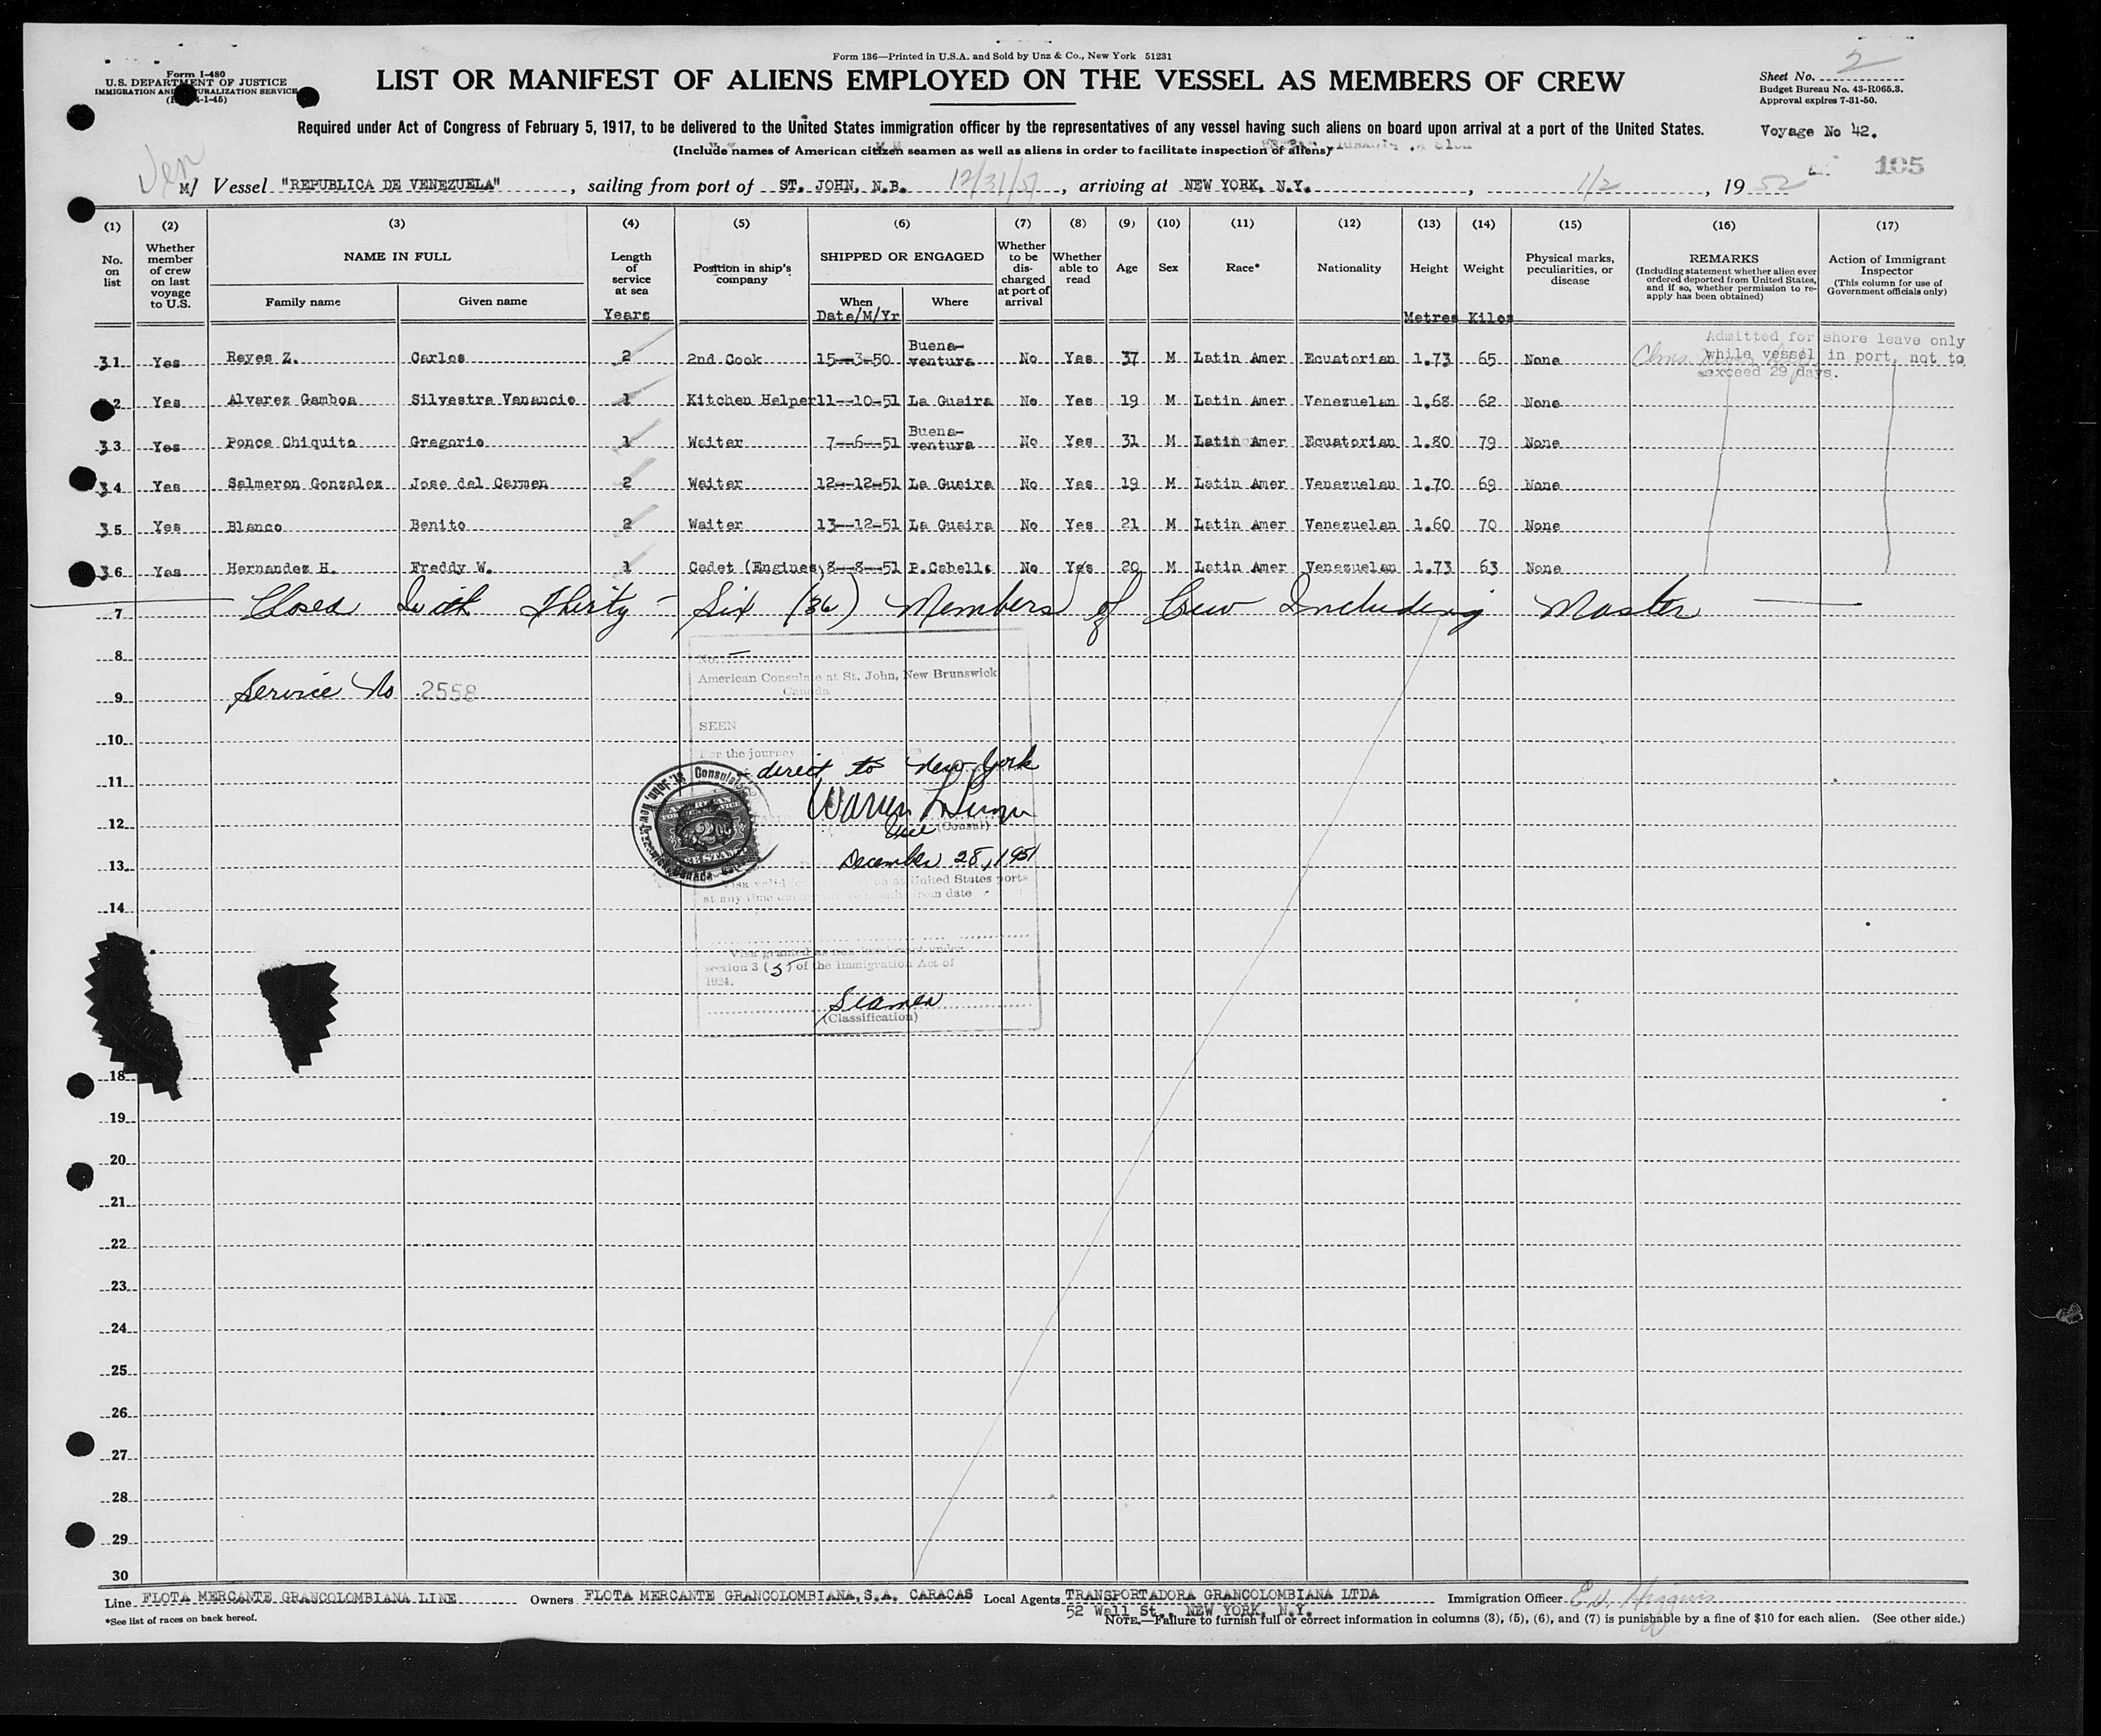 Form 136—Printed in U.S.A. and Sold by Unz & Co., New York 51231
Form I-480
U.S. DEPARTMENT OF JUSTICE
IMMIGRATION AND NATURALIZATION SERVICE
LIST OR MANIFEST OF ALIENS EMPLOYED ON THE VESSEL AS MEMBERS OF CREW
Sheet No. 2
Budget Bureau No. 43-R065.3.
Approval expires 7-31-50.
Required under Act of Congress of February 5, 1917, to be delivered to the United States immigration officer by the representatives of any vessel having such aliens on board upon arrival at a port of the United States.
Voyage No 42.
(Include names of American citizen seamen as well as aliens in order to facilitate inspection of aliens)
105
Ven
M/ Vessel "REPUBLICA DE VENEZUELA", sailing from port of ST. JOHN, N.B. 12/31/51, arriving at NEW YORK, N.Y., 1/2, 1952
(1) (2) (3) (4) (5) (6) (7) (8) (9) (10) (11) (12) (13) (14) (15) (16) (17)
No. on list
Whether member of crew on last voyage to U.S.
NAME IN FULL
Family name
Given name
Length of service at sea
Years
Position in ship's company
SHIPPED OR ENGAGED
When
Date/M/Yr
Where
Whether to be discharged at port of arrival
Whether able to read
Age
Sex
Race*
Nationality
Height
Metres
Weight
Kilos
Physical marks, peculiarities, or disease
REMARKS
(Including statement whether alien ever ordered deported from United States, and if so, whether permission to reapply has been obtained)
Action of Immigrant Inspector
(This column for use of Government officials only)
Admitted for shore leave only
while vessel in port, not to
exceed 29 days.
31 Yes Reyes Z. Carlos 2 2nd Cook 15--3-50 Buena-ventura No Yes 37 M Latin Amer Ecuatorian 1.73 65 None
2 Yes Alvarez Gamboa Silvestre Venancio 1 Kitchen Helper 11--10-51 La Guaira No Yes 19 M Latin Amer Venezuelan 1.68 62 None
33 Yes Ponce Chiquito Gregorio 1 Waiter 7--6--51 Buena-ventura No Yes 31 M Latin Amer Ecuatorian 1.80 79 None
34 Yes Salmeron Gonzalez Jose del Carmen 2 Waiter 12--12-51 La Guaira No Yes 19 M Latin Amer Venezuelan 1.70 69 None
35 Yes Blanco Benito 2 Waiter 13--12-51 La Guaira No Yes 21 M Latin Amer Venezuelan 1.60 70 None
36 Yes Hernandez H. Freddy W. 1 Cadet (Engines) 8--8--51 P.Cabello No Yes 20 M Latin Amer Venezuelan 1.73 63 None
7 Closed With Thirty-Six (36) Members of Crew Including Master
8
No.
American Consulate at St. John, New Brunswick
Canada
9 Service No 2558
SEEN
10
For the journey
direct to New York
11
Warren
12
Vice (Consul)
13
December 28, 1951
at United States ports
at any time
from date
14
Visa granted as non-immigrant under
section 3 (5) of the Immigration Act of
1924.
Seamen
(Classification)
18
19
20
21
22
23
24
25
26
27
28
29
30
Line FLOTA MERCANTE GRANCOLOMBIANA LINE Owners FLOTA MERCANTE GRANCOLOMBIANA, S.A. CARACAS Local Agents TRANSPORTADORA GRANCOLOMBIANA LTDA Immigration Officer E. Higgins
52 Wall St., NEW YORK, N.Y.
*See list of races on back hereof.
NOTE.—Failure to furnish full or correct information in columns (3), (5), (6), and (7) is punishable by a fine of $10 for each alien. (See other side.)